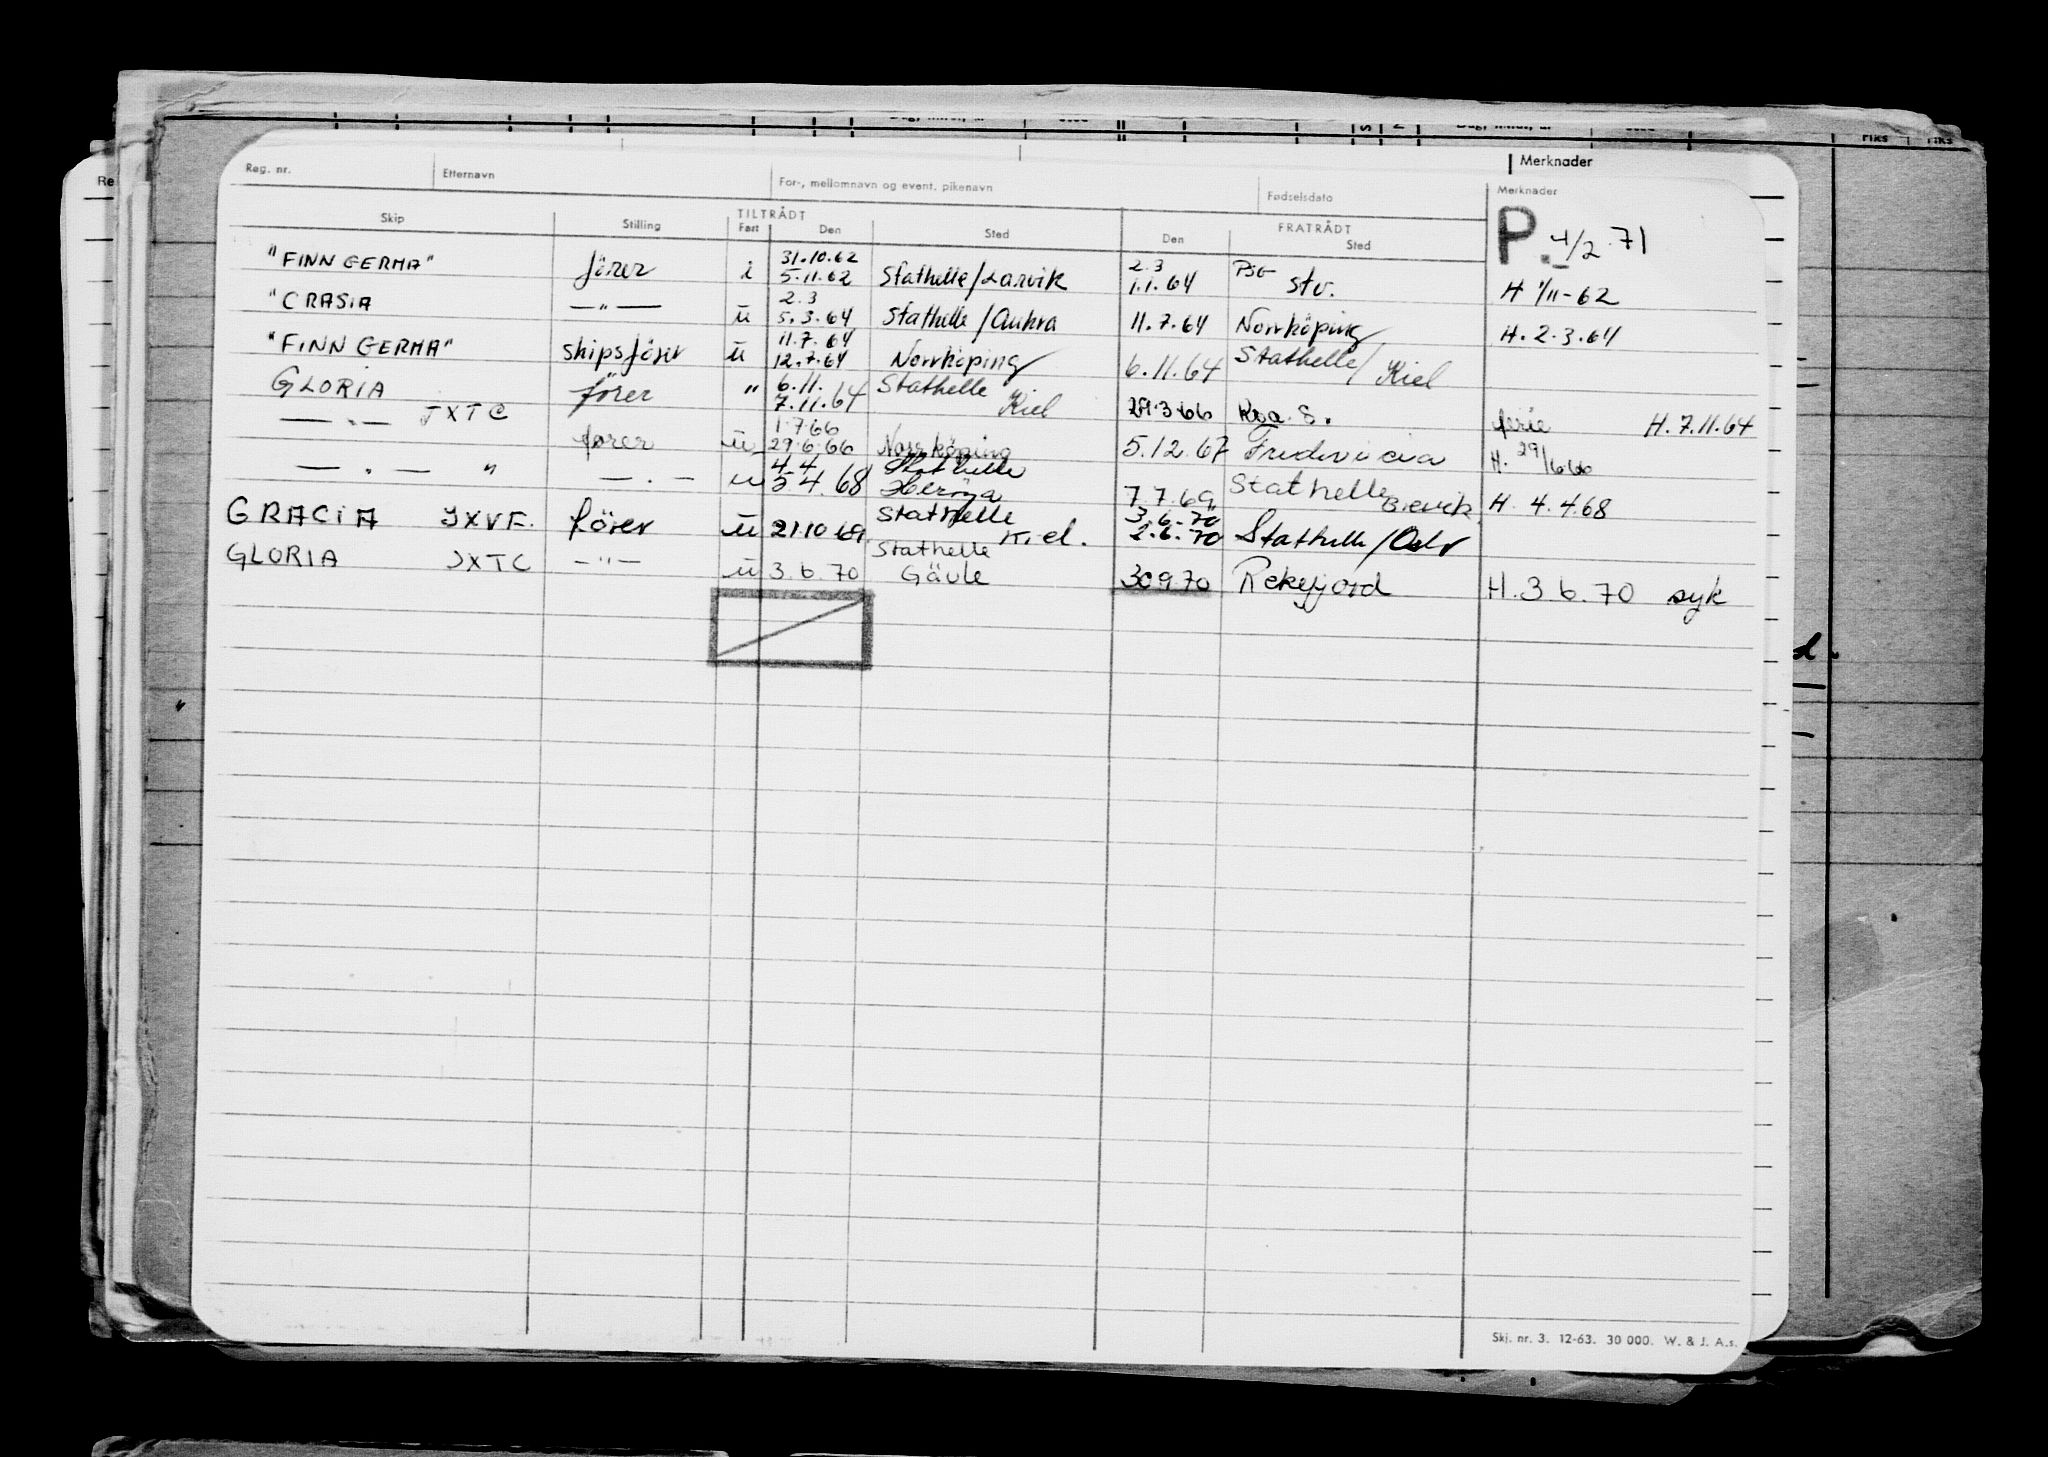 Merknader
Reg. nr. Etternavn For-, mellomnavn og event. pikenavn Fødselsdato Merknader
Skip Stilling TILTRÅDT Fart Den Sted FRATRÅDT Den Sted
P. 4/2.71
"FINN GERMA" förer i 31.10.62 5.11.62 Stathelle/Larvik 2.3 1.1.64 PSG stv. H 1/11-62
"CRASIA —"— ü 2.3 5.3.64 Stathelle/Aukra 11.7.64 Norrköping H. 2.3.64
"FINN GERMA" skipsförer ü 11.7.64 12.7.64 Norrköping 6.11.64 Stathelle/Kiel
GLORIA förer " 6.11. 7.11.64 Stathelle Kiel 29.3.66 Roa. S. ferie H. 7.11.64
—"— JXTC förer ü 1.7.66 29.6.66 Norrköping 5.12.67 Fridericia H. 29/6 66
—"— " —"— ü 4.4 5.4.68 Stathelle Heröya 7.7.69 Stathelle Brevik H. 4.4.68
GRACIA JXVF. förer ü 21.10 69. Stathelle Kiel. 3.6.70 2.6.70 Stathelle/Oslo
GLORIA JXTC —"— ü 3.6.70 Stathelle Gävle 30.9.70 Rekefjord H. 3.6.70 syk
Skj. nr. 3. 12-63. 30 000. W. & J. A.s.